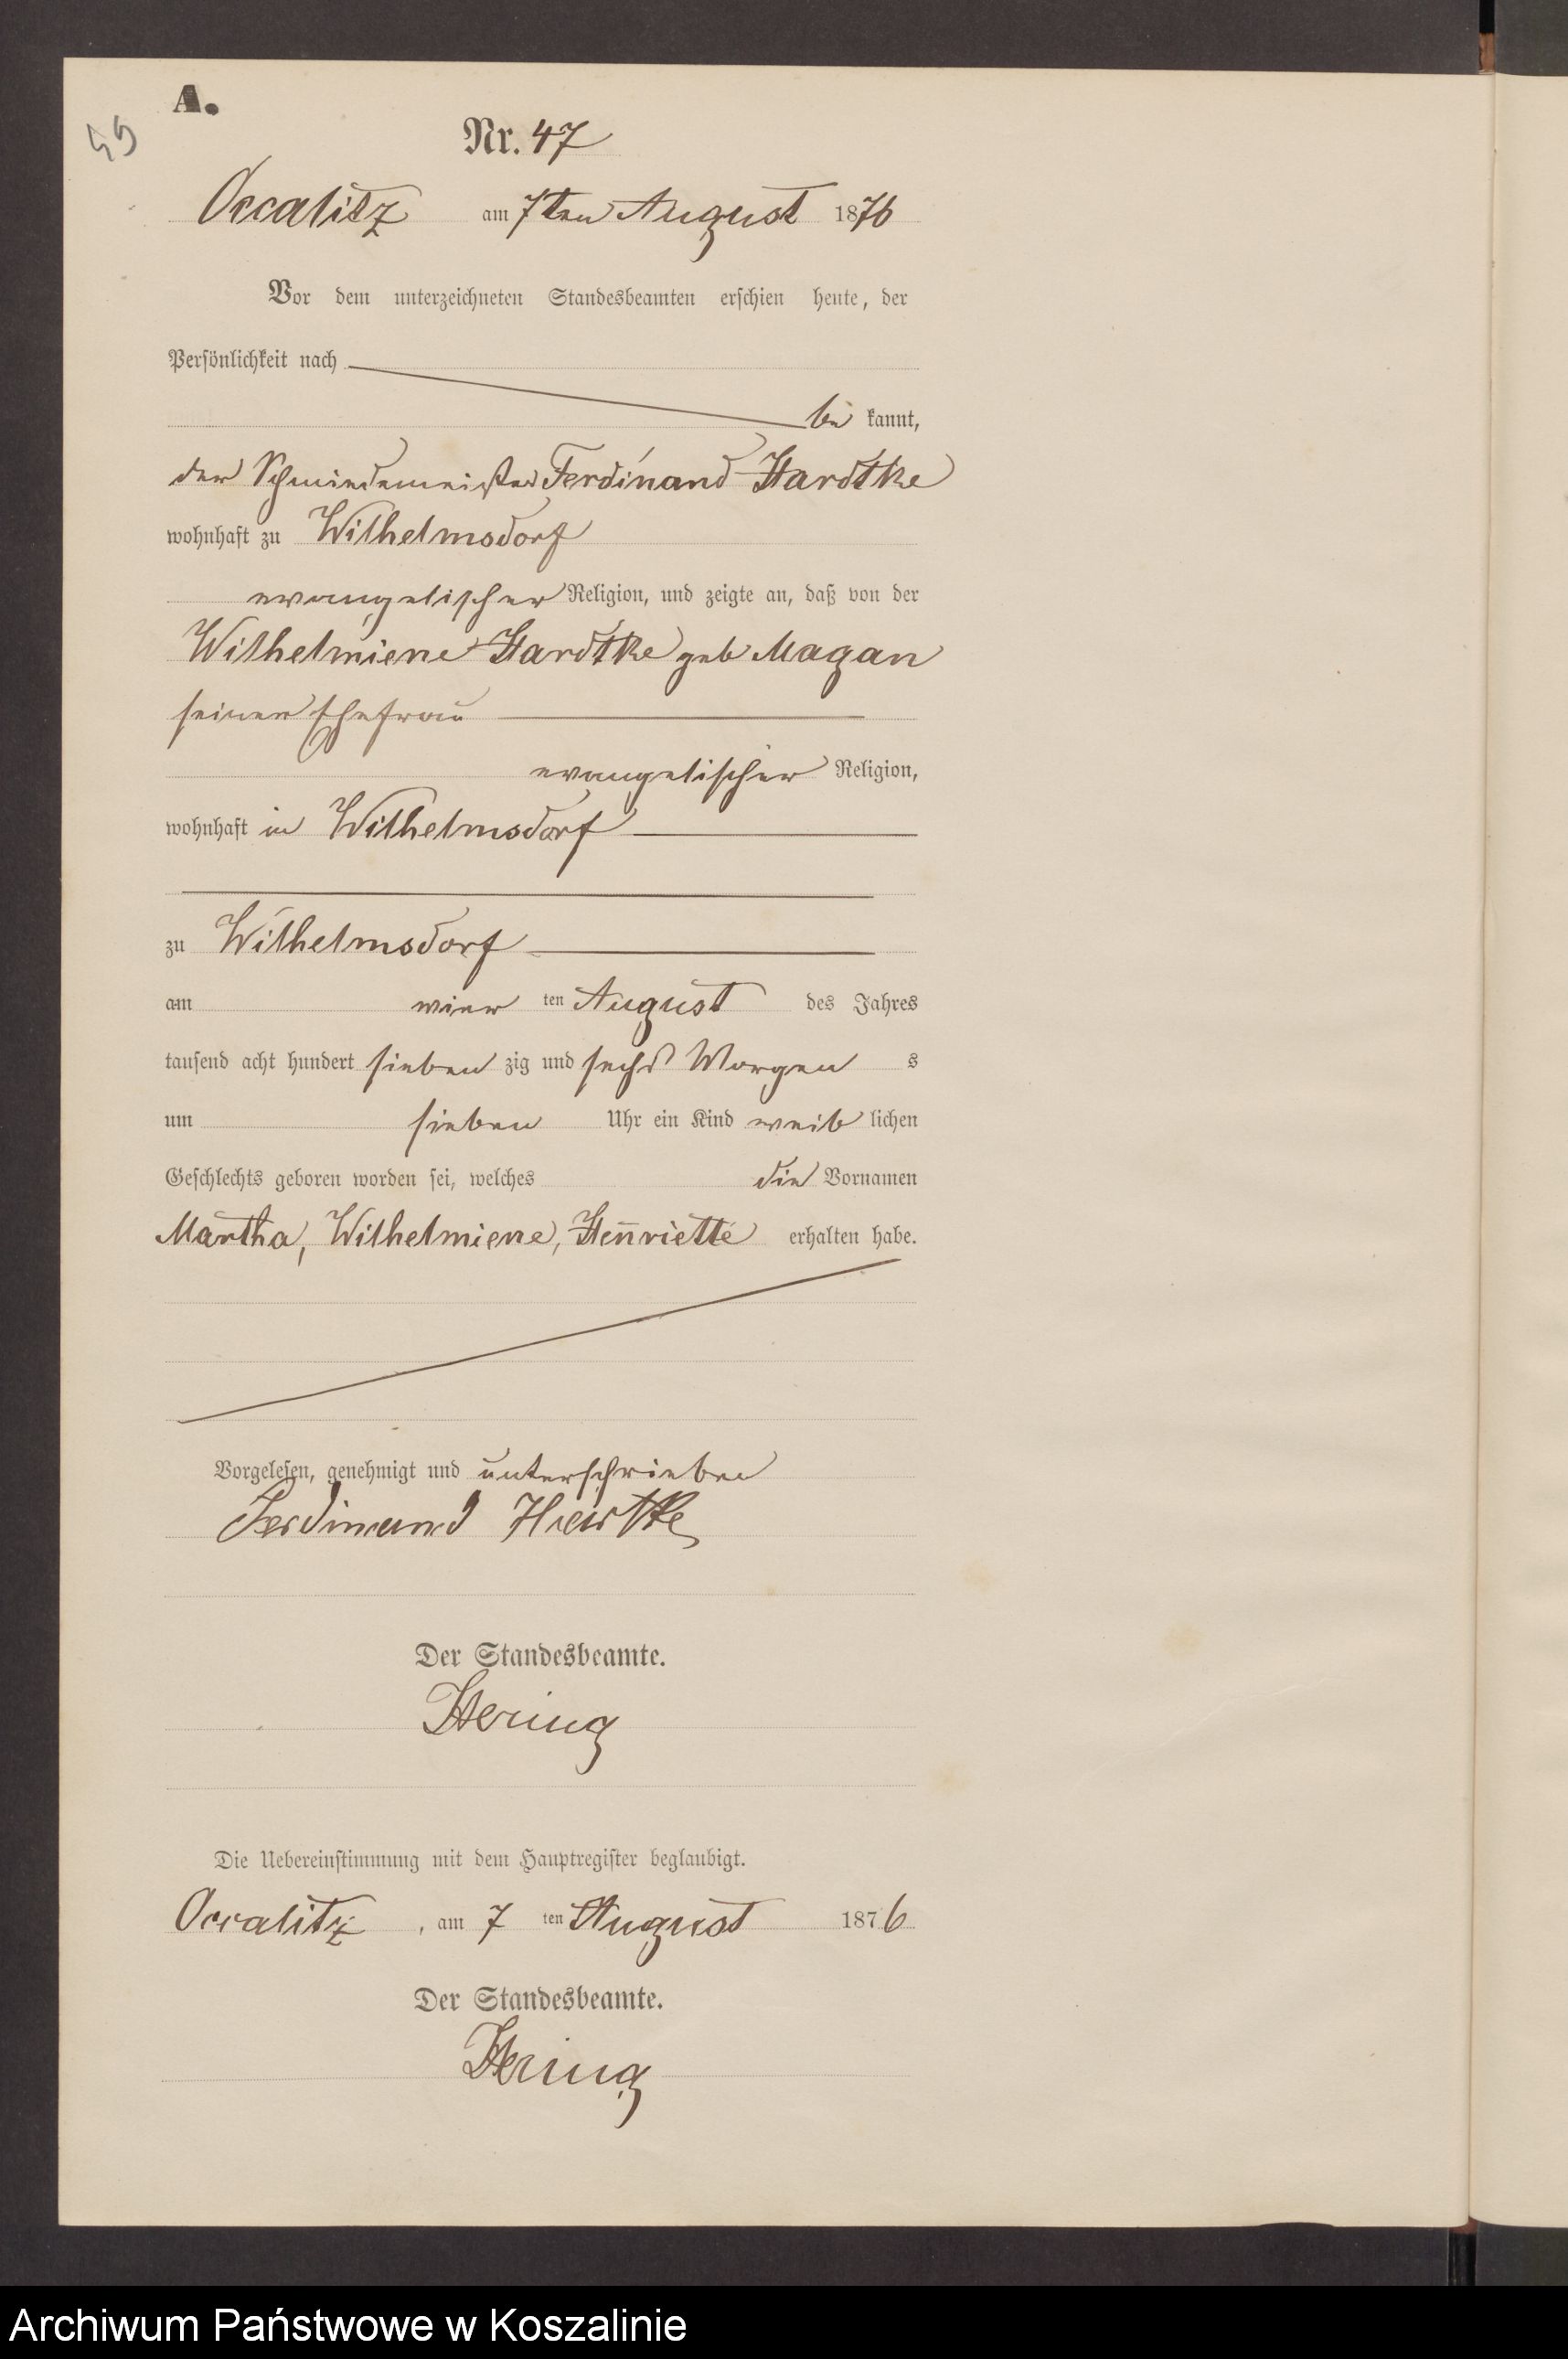 A.
49
Nr. 47
Occalitz am 7ten August 1876
Vor dem unterzeichneten Standesbeamten erschien heute, der
Persönlichkeit nach
be kannt,
der Schmiedemeister Ferdinand Hardtke
wohnhaft zu Wilhelmsdorf
evangelischer Religion, und zeigte an, daß von der
Wilhelmiene Hardtke geb Magan
seiner Ehefrau
evangelischer Religion,
wohnhaft in Wilhelmsdorf
zu Wilhelmsdorf
am vier ten August des Jahres
tausend acht hundert sieben zig und sechs Morgen s
um sieben Uhr ein Kind weib lichen
Geschlechts geboren worden sei, welches die Vornamen
Martha, Wilhelmiene, Henriette erhalten habe.
Vorgelesen, genehmigt und unterschrieben
Ferdinand Hartke
Der Standesbeamte.
Hering
Die Uebereinstimmung mit dem Hauptregister beglaubigt.
Occalitz, am 7 ten August 1876
Der Standesbeamte.
Hering
Archiwum Państwowe w Koszalinie